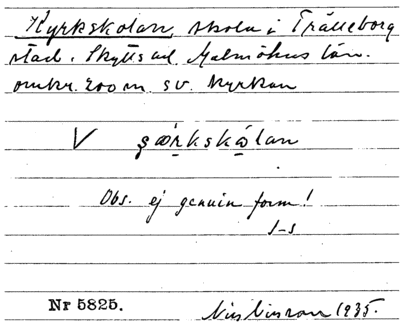 Kyrkskolan, skola i Trälleborg
stad. Skytts hd. Malmöhus län.
omkr. 200 m. sv. kyrkan
V ʂørkskǫlan
Obs. ej genuin form!
J-s
Nr 5825. Nils Nilsson 1935.